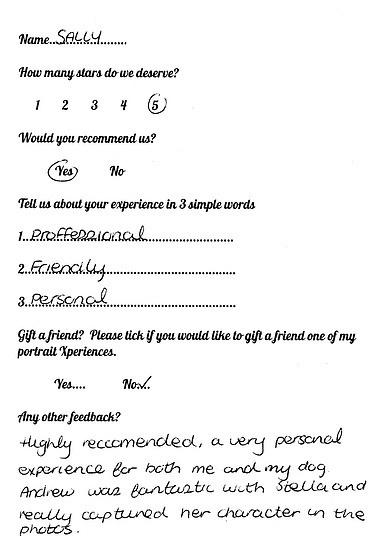 Name..SALLY........
How many stars do we deserve?
1 2 3 4 5
Would you recommend us?
Yes No
Tell us about your experience in 3 simple words
1. Proffessional
2. Friendly
3. Personal
Gift a friend? Please tick if you would like to gift a friend one of my
portrait Xperiences.
Yes.... No.✓.
Any other feedback?
Highly reccomended, a very personal
experience for both me and my dog.
Andrew was fantastic with Stella and
really captured her character in the
photos.